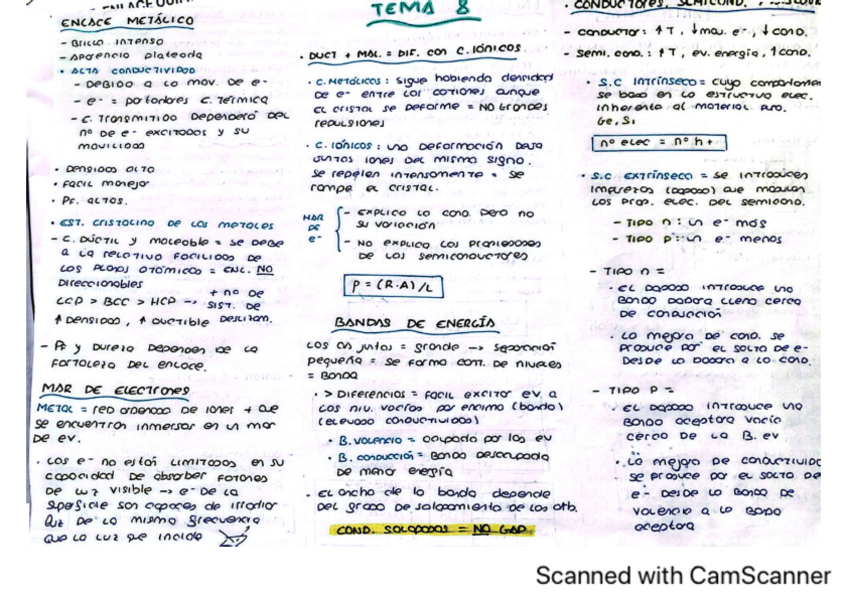 TEMA 8
ENLACE METÁLICO
- Brillo intenso
- Apariencia plateada
• ALTA CONDUCTIVIDAD
- DEBIDO A LO MOV. DE e-
- e- = portadores C. TÉRMICA
- C. TRANSMITIDO DEPENDERÁ DEL
nº DE e- EXCITADOS Y SU
MOVILIDAD
• DENSIDAD ALTA
• FACIL MANEJO
• PF. ALTOS.
• EST. CRISTALINO DE LOS METALES
- C. DÚCTIL Y MALEABLE = SE DEBE
A LA RELATIVA FACILIDAD DE
LOS PLANOS ATÓMICOS = ENL. NO
DIRECCIONABLES
CCP > BCC > HCP → + nº DE
SIST. DE
↑ DENSIDAD, ↑ DUCTIBLE DESLIZAM.
- PF Y DUREZA DEPENDEN DE LA
FORTALEZA DEL ENLACE.
MAR DE ELECTRONES
METAL = RED ORDENADA DE IONES + QUE
SE ENCUENTRAN INMERSOS EN UN MAR
DE EV.
• LOS e- NO ESTÁN LIMITADOS EN SU
CAPACIDAD DE ABSORBER FOTONES
DE LUZ VISIBLE → e- DE LA
SUPERFICIE SON CAPACES DE IRRADIAR
LUZ DE LA MISMA FRECUENCIA
QUE LA LUZ QUE INCIDE
• DUCT + MAL = DIF. CON C. IÓNICOS.
• C. METÁLICOS: SIGUE HABIENDO DENSIDAD
DE e- ENTRE LOS CATIONES AUNQUE
EL CRISTAL SE DEFORME = NO GRANDES
REPULSIONES
• C. IÓNICOS: UNA DEFORMACIÓN DEJA
JUNTOS IONES DEL MISMO SIGNO.
SE REPELEN INTENSAMENTE = SE
ROMPE EL CRISTAL.
MAR DE e-
- EXPLICA LA COND. PERO NO
SU VARIACIÓN
- NO EXPLICA LAS PROPIEDADES
DE LOS SEMICONDUCTORES
P = (R·A)/L
BANDAS DE ENERGÍA
LOS OA JUNTOS = GRANDE → SEPARACIÓN
PEQUEÑA = SE FORMA CONT. DE NIVELES
= BANDA
• > DIFERENCIAS = FACIL EXCITAR EV A
LOS NIV. VACÍOS POR ENCIMA (BANDA)
(ELEVADA CONDUCTIVIDAD)
• B. VALENCIA = OCUPADA POR LOS EV
• B. CONDUCCIÓN = BANDA DESOCUPADA
DE MENOR ENERGÍA
• EL ANCHO DE LA BANDA DEPENDE
DEL GRADO DE SOLAPAMIENTO DE LOS ORB.
COND. SOLAPADAS = NO GAP.
• CONDUCTORES, SEMICOND.
- CONDUCTOR: ↑ T, ↓ mov. e-, ↓ cond.
- SEMI. COND.: ↑ T, ev. energía, ↑ cond.
• S.C INTRÍNSECO = CUYO COMPORTAMIEN
SE BASA EN LA ESTRUCTURA ELEC.
INHERENTE AL MATERIAL PURO.
Ge, Si
nº elec = nº h+
• S.C EXTRÍNSECO = SE INTRODUCEN
IMPUREZAS (DOPADO) QUE MODULAN
LAS PROP. ELEC. DEL SEMICOND.
- TIPO n: un e- más
- TIPO p: un e- menos
- TIPO n =
• EL DOPADO INTRODUCE UNA
BANDA DADORA LLENA CERCA
DE CONDUCCIÓN
• LA MEJORA DE COND. SE
PRODUCE POR EL SALTO DE e-
DESDE LA DADORA A LA COND.
- TIPO P =
• EL DOPADO INTRODUCE UNA
BANDA ACEPTORA VACÍA
CERCA DE LA B. EV
• LA MEJORA DE CONDUCTIVID
SE PRODUCE POR EL SALTO DE
e- DESDE LA BANDA DE
VALENCIA A LA BANDA
ACEPTORA
Scanned with CamScanner